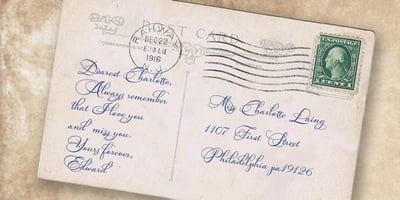 POST CARD
RAHWAY
DEC 22
1916
N.J.
Dearest Charlotte,
Always remember
that I love you
and miss you.
Yours forever,
Edward
Miss Charlotte Laing
1107 First Street
Philadelphia, pa 19126